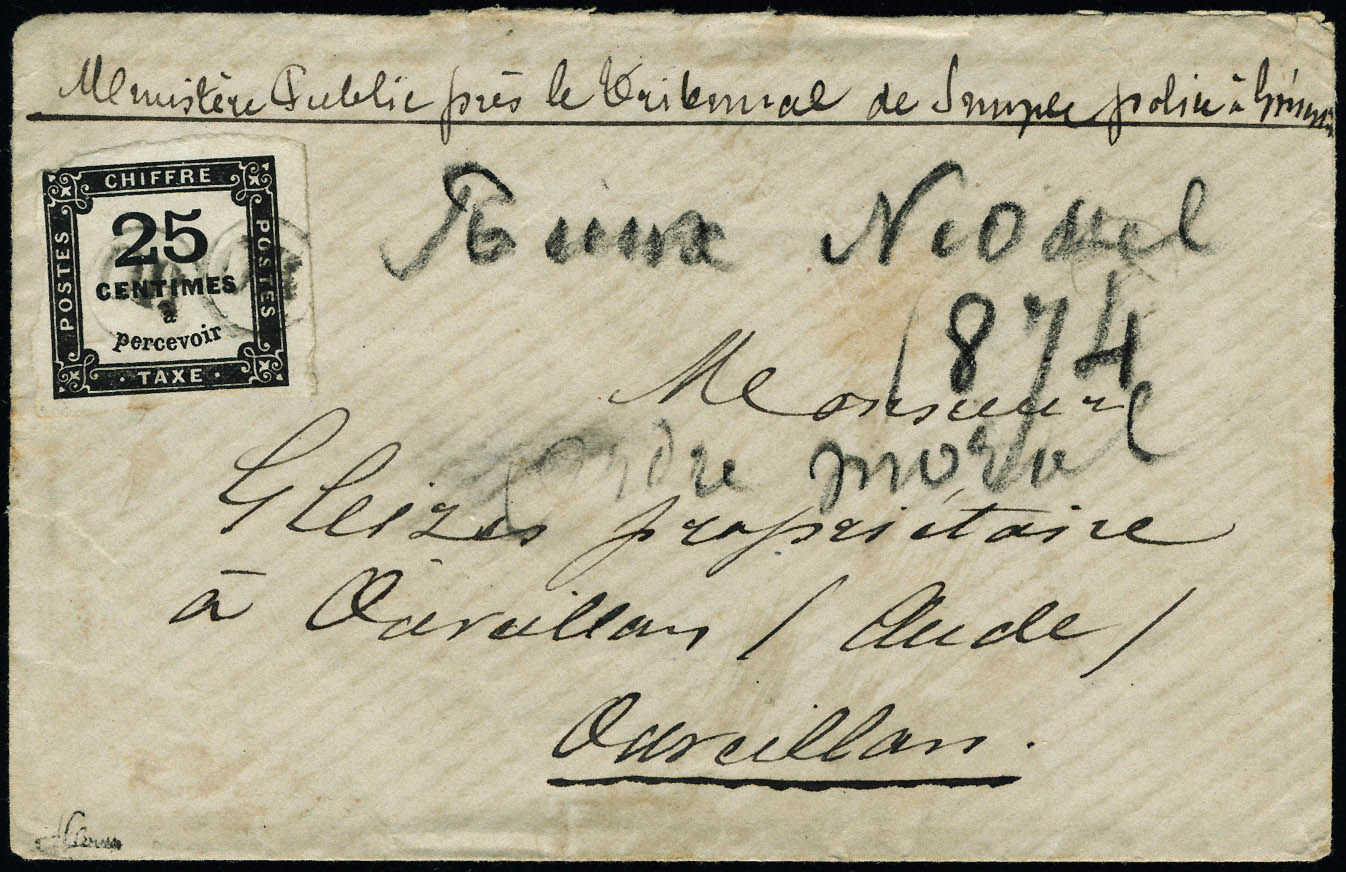 Ministère Public près le Tribunal de Simple police à
CHIFFRE
POSTES
25
CENTIMES
à
percevoir
POSTES
· TAXE ·
1874
Monsieur
ordre moral
Gleizes propriétaire
à Oarcillan / Aude /
Oarcillan.